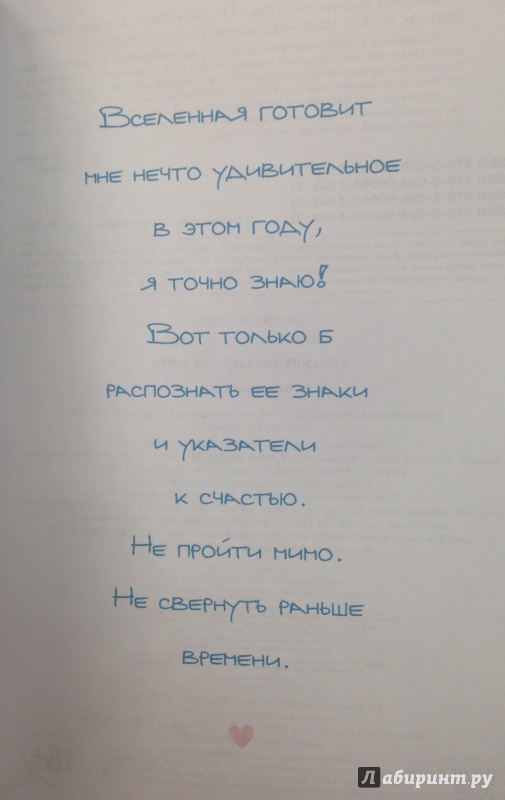 Вселенная готовит
мне нечто удивительное
в этом году,
я точно знаю!
Вот только б
распознать ее знаки
и указатели
к счастью.
Не пройти мимо.
Не свернуть раньше
времени.
Лабиринт.ру